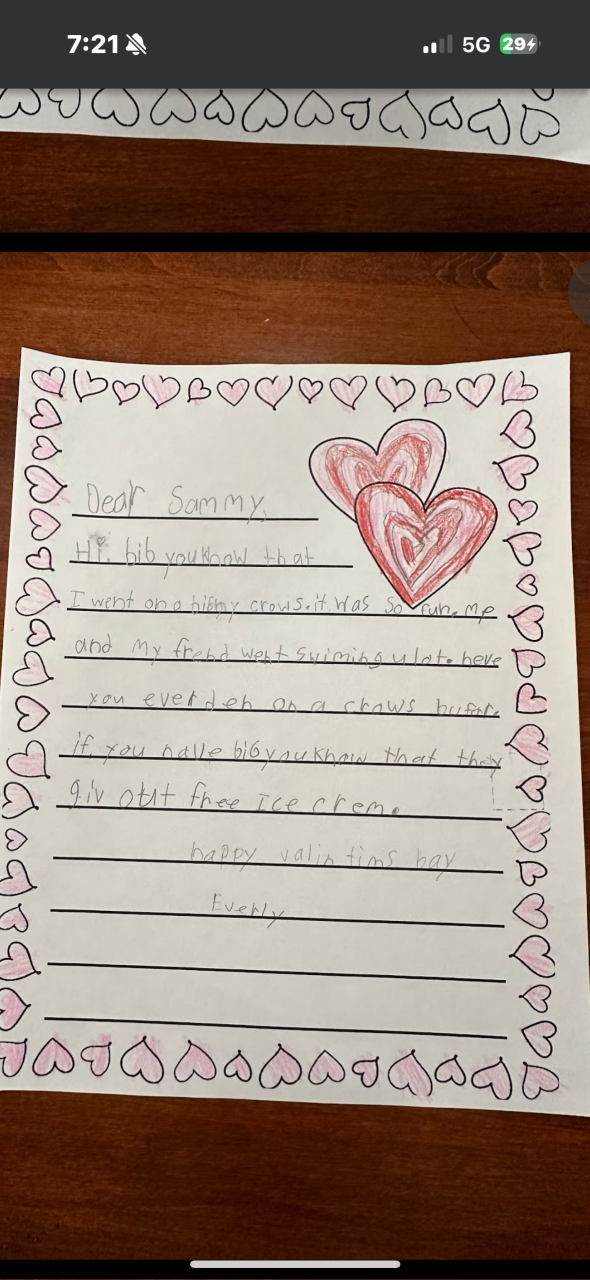 7:21
5G
29
Dear Sammy,
Hi. bib you know that
I went on a crows. it was so fun. me
and my frend went swiming u lot. heve
you ever deh on a crows bufor.
if you halle bib you know that they
giv out free Ice crem.
happy valin tims bay
Everly